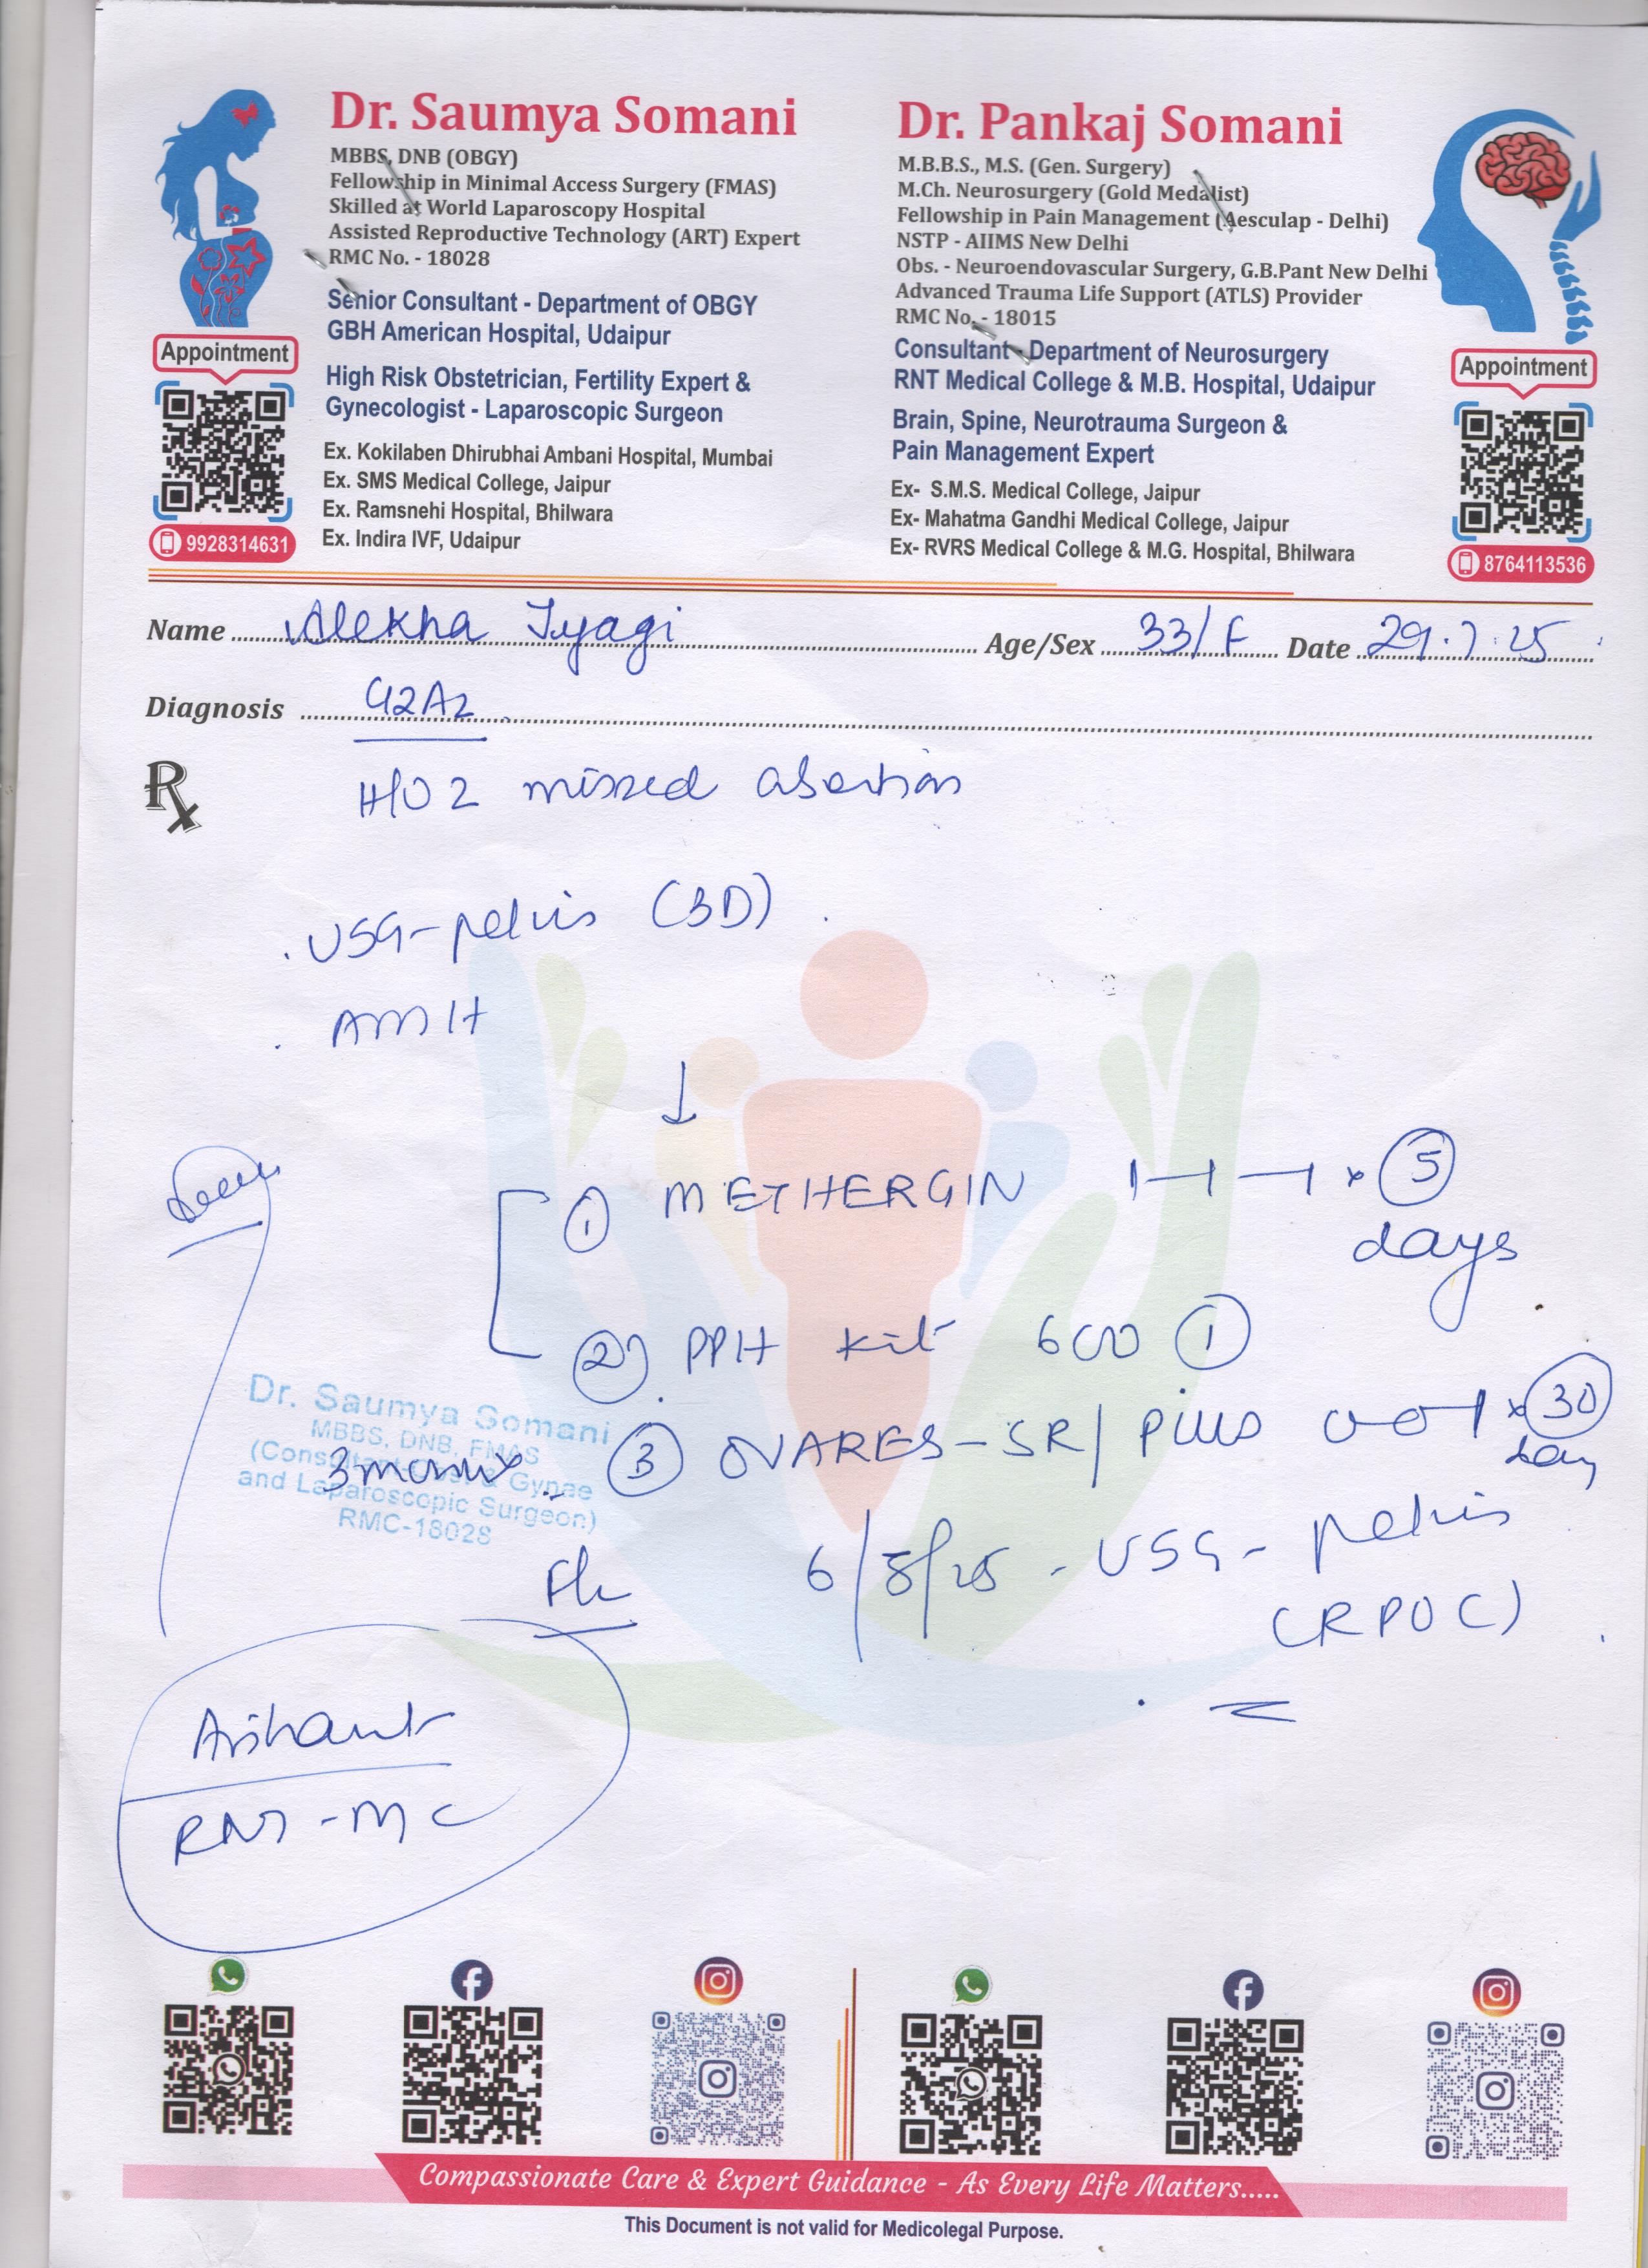 Dr. Saumya Somani
MBBS, DNB (OBGY)
Fellowship in Minimal Access Surgery (FMAS)
Skilled at World Laparoscopy Hospital
Assisted Reproductive Technology (ART) Expert
RMC No. - 18028
Senior Consultant - Department of OBGY
GBH American Hospital, Udaipur
High Risk Obstetrician, Fertility Expert &
Gynecologist - Laparoscopic Surgeon
Ex. Kokilaben Dhirubhai Ambani Hospital, Mumbai
Ex. SMS Medical College, Jaipur
Ex. Ramsnehi Hospital, Bhilwara
Ex. Indira IVF, Udaipur
Appointment
9928314631
Dr. Pankaj Somani
M.B.B.S., M.S. (Gen. Surgery)
M.Ch. Neurosurgery (Gold Medalist)
Fellowship in Pain Management (Aesculap - Delhi)
NSTP - AIIMS New Delhi
Obs. - Neuroendovascular Surgery, G.B.Pant New Delhi
Advanced Trauma Life Support (ATLS) Provider
RMC No. - 18015
Consultant - Department of Neurosurgery
RNT Medical College & M.B. Hospital, Udaipur
Brain, Spine, Neurotrauma Surgeon &
Pain Management Expert
Ex- S.M.S. Medical College, Jaipur
Ex- Mahatma Gandhi Medical College, Jaipur
Ex- RVRS Medical College & M.G. Hospital, Bhilwara
Appointment
8764113536
Name Alekha Tyagi Age/Sex 33/F Date 29.7.25
Diagnosis G2A2
Rx
H/O 2 missed abortion
. USG-pelvis (3D)
. AMH
↓
① METHERGIN 1-1-1 x ⑤
days
② PPH kit 600 ①
③ OVARES-SR/Plus 0-0-1 x ㉚
day
Dr. Saumya Somani
MBBS, DNB, FMAS
(Consultant Obs. & Gynae
and Laparoscopic Surgeon)
RMC-18028
6/8/25 - USG - pelvis
(RPOC)
RNT-MC
Compassionate Care & Expert Guidance - As Every Life Matters.....
This Document is not valid for Medicolegal Purpose.